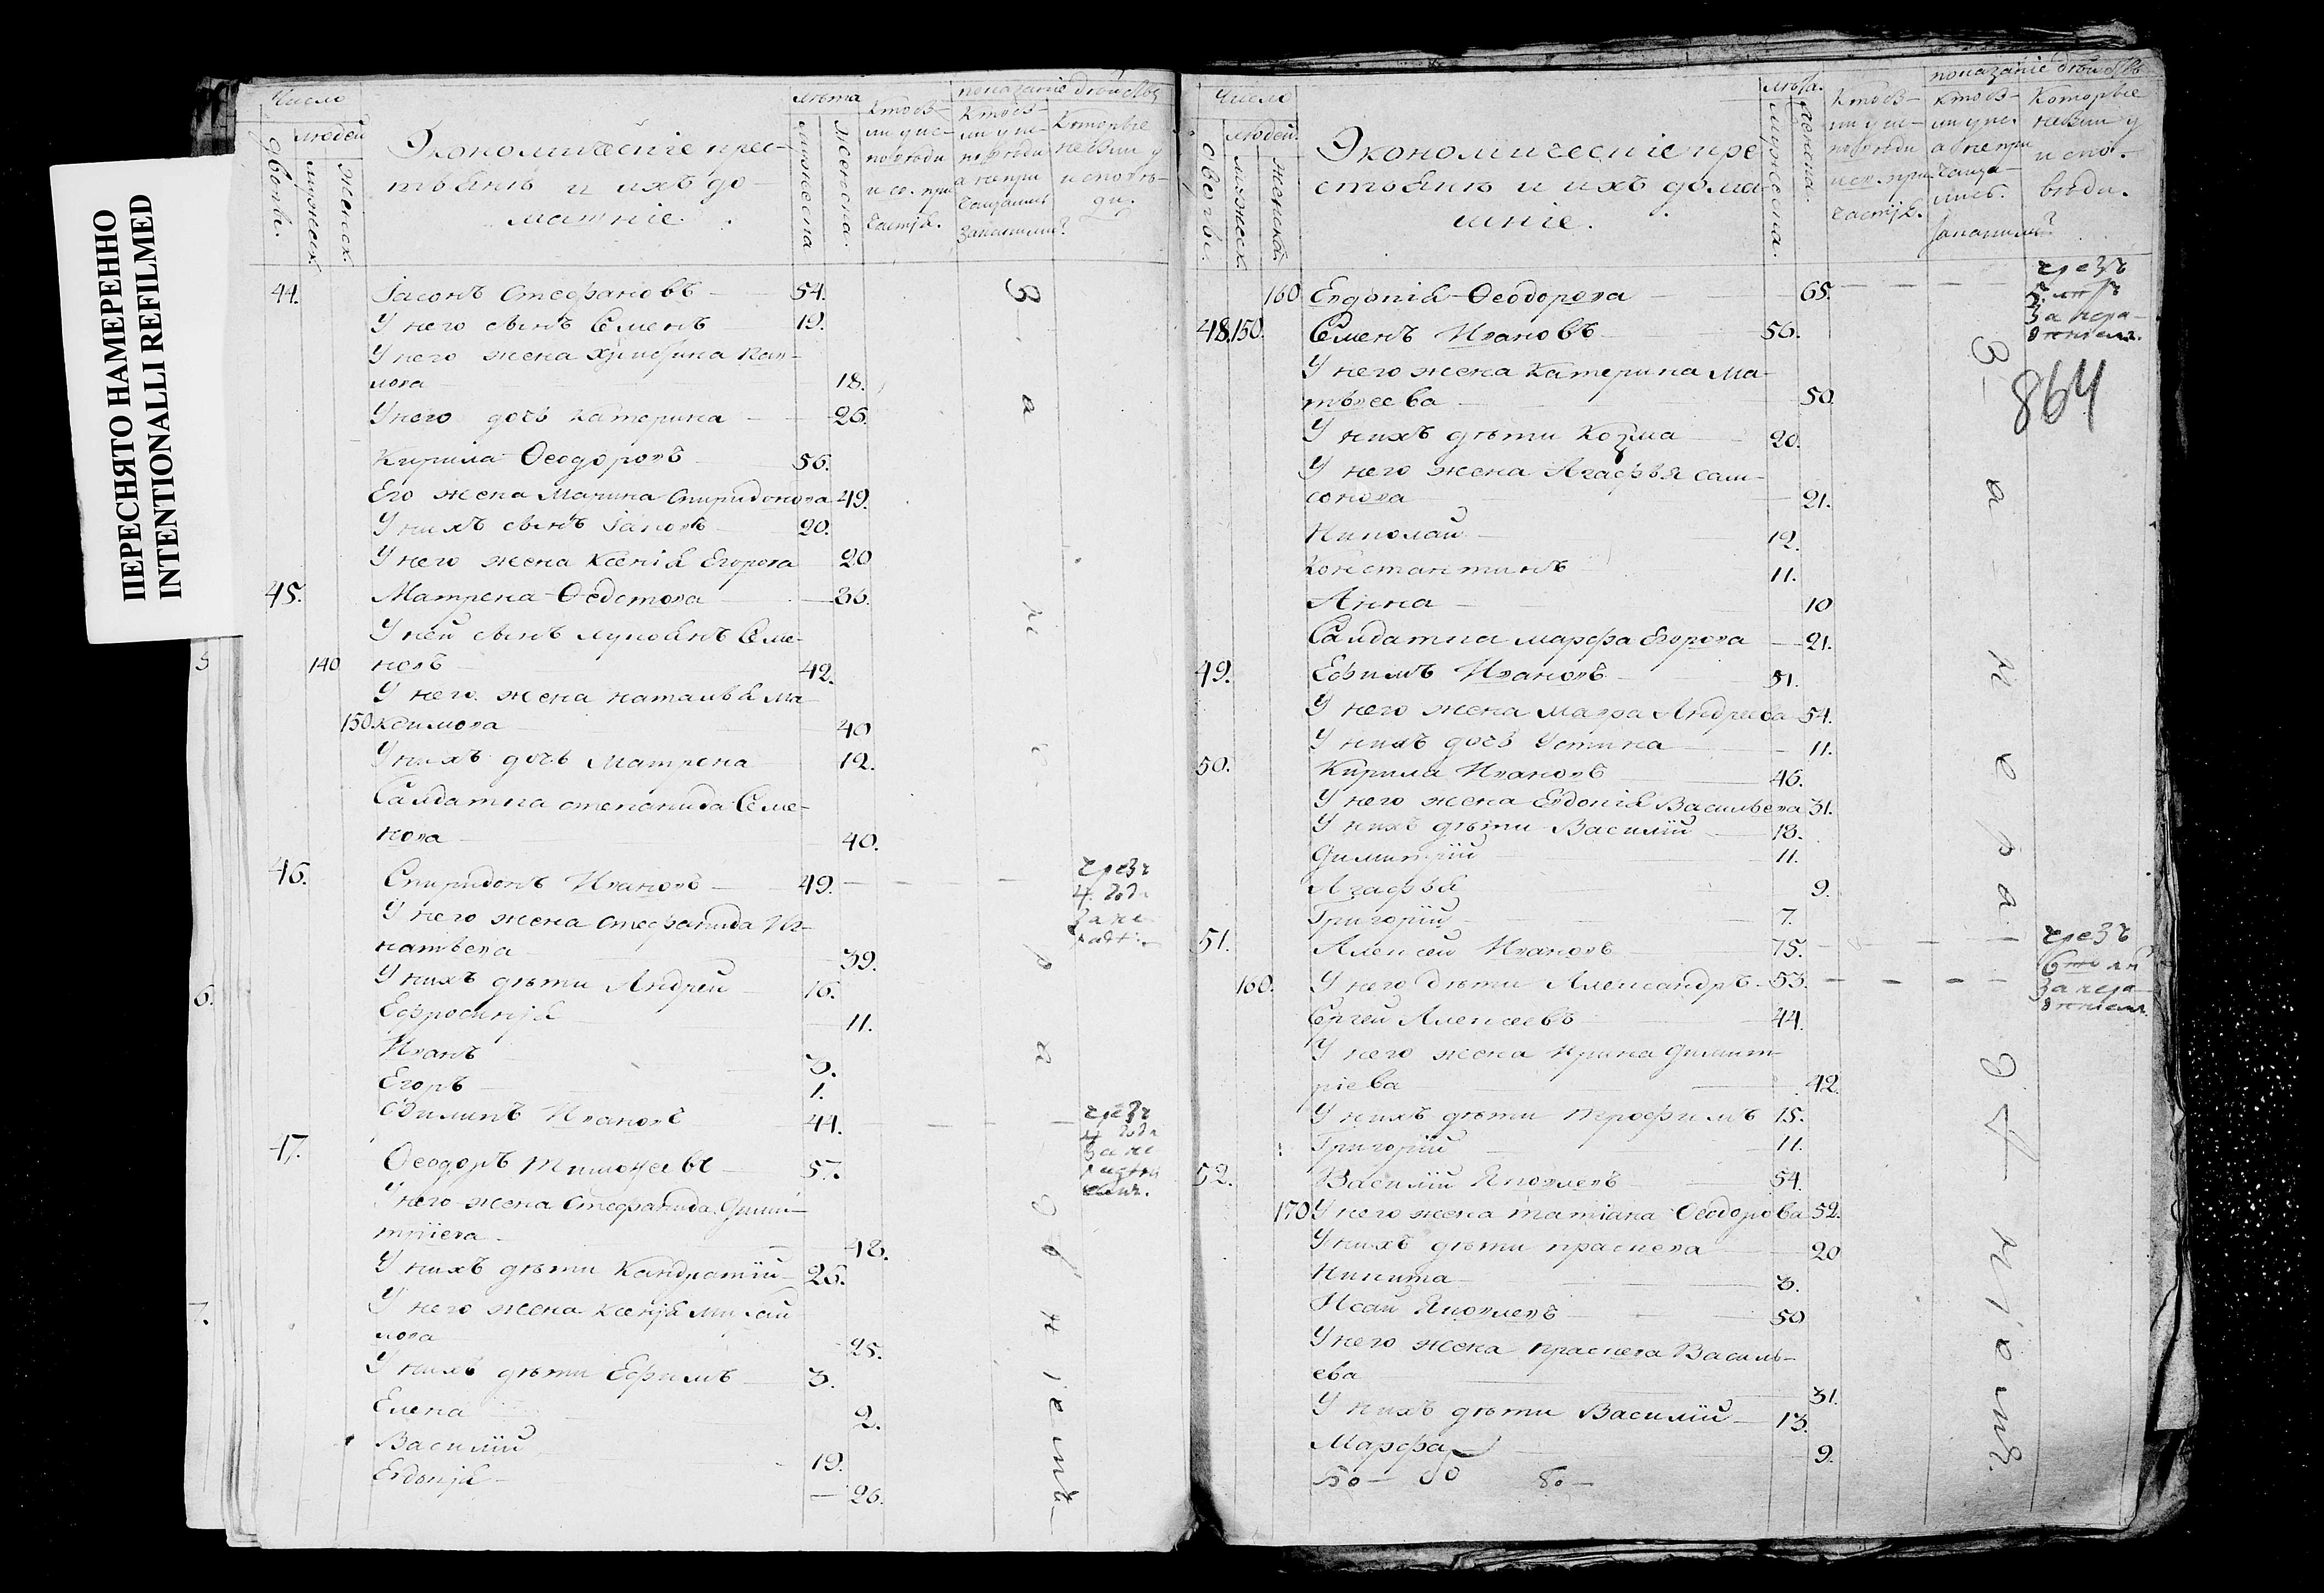 ПЕРЕСНЯТО НАМЕРЕННО
INTENTIONALLI REFILMED
Число
людей
дворы.
мужеск.
женск.
Экономическіе крес-
тьянѣ и ихъ до-
машніе.
лѣта
мужеска
женска.
показаніе действъ
44.
Іасонъ Стефановъ 54.
У него сынъ Семенъ 19.
У него жена Христина
лова 18.
У него дочь катерина 26.
Кирила Ѳеодоровъ 56.
Его жена Марина Спиридонова 49.
У нихъ сынъ Іаковъ 20.
У него жена Ксенія Егорова 20
45. Матрена Ѳедотова 36.
У ней сынъ Лукоянъ Семе-
140 новъ 42.
У него жена наталья Ма
150 ксимова 40
У нихъ дочь Матрена 12.
Салдатка степанида Семе-
нова 40.
46. Спиридонъ Ивановъ 49.
чрезъ
4. года
за не
У него жена Стефанида Иг-
натьева 39.
У нихъ дѣти Андрей 16.
Ефросинія 11.
Иванъ 3.
Егоръ 1.
Филипъ Ивановъ 44.
чрезъ
4 года
за не
47. Ѳеодоръ Тимофеевъ 57.
У него жена Стефанида Дими-
тріева 48.
У нихъ дѣти Кандратій 25.
У него жена Ксенія Михай
лова 25.
У нихъ дѣти Ефимъ 3.
Елена 2.
Василій 19.
Евдокія 26.
За нерадѣніемъ
Число
людей.
дворы.
мужеск
женской
Экономическіе кре
стьянѣ и ихъ дома
шніе.
лѣта.
мужеска.
женска.
показаніе действъ
Которые
не были у
испо-
вѣди.
160 Евдокія Ѳеодорова 65.
чрезъ
5. лѣтъ
за нера-
дѣніемъ.
864
48. 150. Семенъ Ивановъ 56.
У него жена Катерина Ма-
твеева 50.
У нихъ дѣти Козма 20.
У него жена Агафья сам-
сонова 21.
Николай 12.
Константинъ 11.
Анна 10
Салдатка марфа Егорова 21.
49. Ефимъ Ивановъ 51.
У него жена мавра Андреева 54.
У нихъ дочь Устина 11.
50. Кирила Ивановъ 46.
У него жена Евдокія Васильева 31.
У нихъ дѣти Василій 13.
Димитрій 11.
Агафья 9.
Григорій 7.
51. Алексей Ивановъ 75.
чрезъ
6
за нера
дѣніемъ.
160. У него дѣти Александръ 53.
Сергей Алексеевъ 44.
У него жена Ирина Димит-
ріева 42.
У нихъ дѣти 15.
Григорій 11.
52. Василій Яковлевъ 54.
170 У него жена татіана Ѳеодорова 52.
У нихъ дѣти праскева 20
Никита 3.
Исай Яковлевъ 50
У него жена праскева Василь-
ева 31.
У нихъ дѣти Василій 13.
Марфа 9.
За нерадѣніемъ.